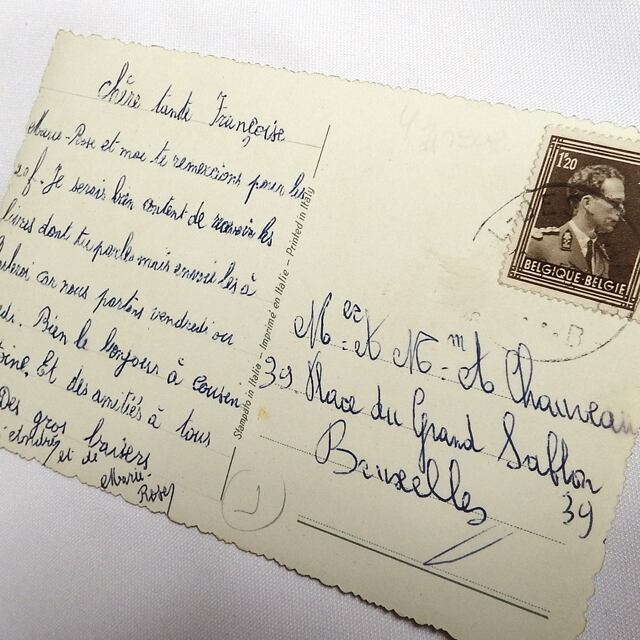 chère tante Françoise
Marie-Rose et moi te remercions pour les
Je serais bien content de ravoir les
livres dont tu parles mais envoie les à
car nous partons vendredi ou
Bien le bonjour à cousin
Et des amitiés à tous
Des gros baisers
et de
Marie-
Rose
Stampato in Italia - Imprimé en Italie - Printed in Italy
1'20
BELGIQUE-BELGIE
B
Chauveau
39 Place du Grand Sablon
39
Bruxelles
1